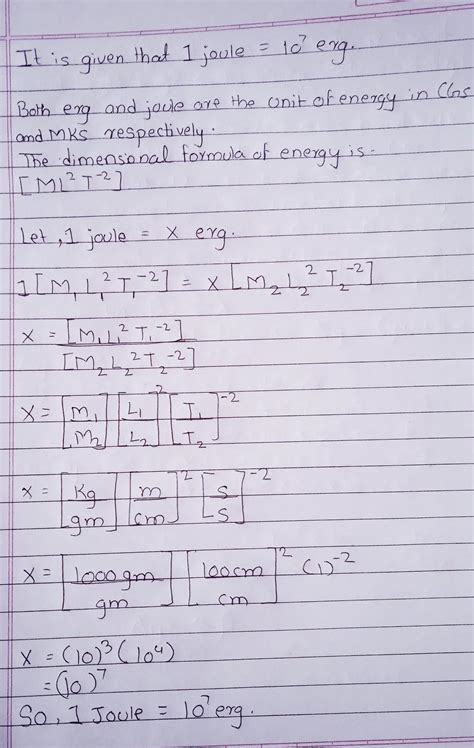 It is given that 1 joule = 10⁷ erg.
Both erg and joule are the unit of energy in CGS
and MKS respectively.
The dimensional formula of energy is.
[ML²T⁻²]
Let, 1 joule = x erg.
1[M₁L₁²T₁⁻²] = x[M₂L₂²T₂⁻²]
x = [M₁L₁²T₁⁻²] / [M₂L₂²T₂⁻²]
x = [M₁/M₂] [L₁/L₂]² [T₁/T₂]⁻²
x = [Kg/gm] [m/cm]² [s/s]⁻²
x = [1000gm/gm] [100cm/cm]² (1)⁻²
x = (10)³(10⁴)
= (10)⁷
So, 1 Joule = 10⁷ erg.